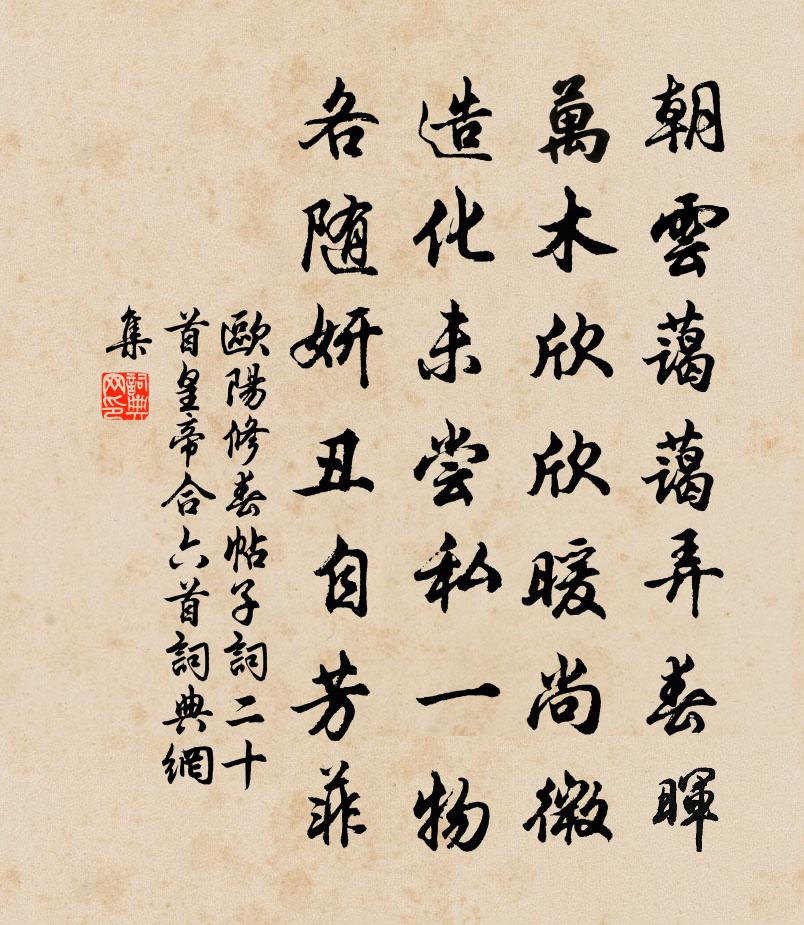 朝雲藹藹弄春暉
萬木欣欣暖尚微
造化未尝私一物
各随妍丑自芳菲
歐陽修春帖子詞二十
首皇帝合六首詞典網
集
詞典网印